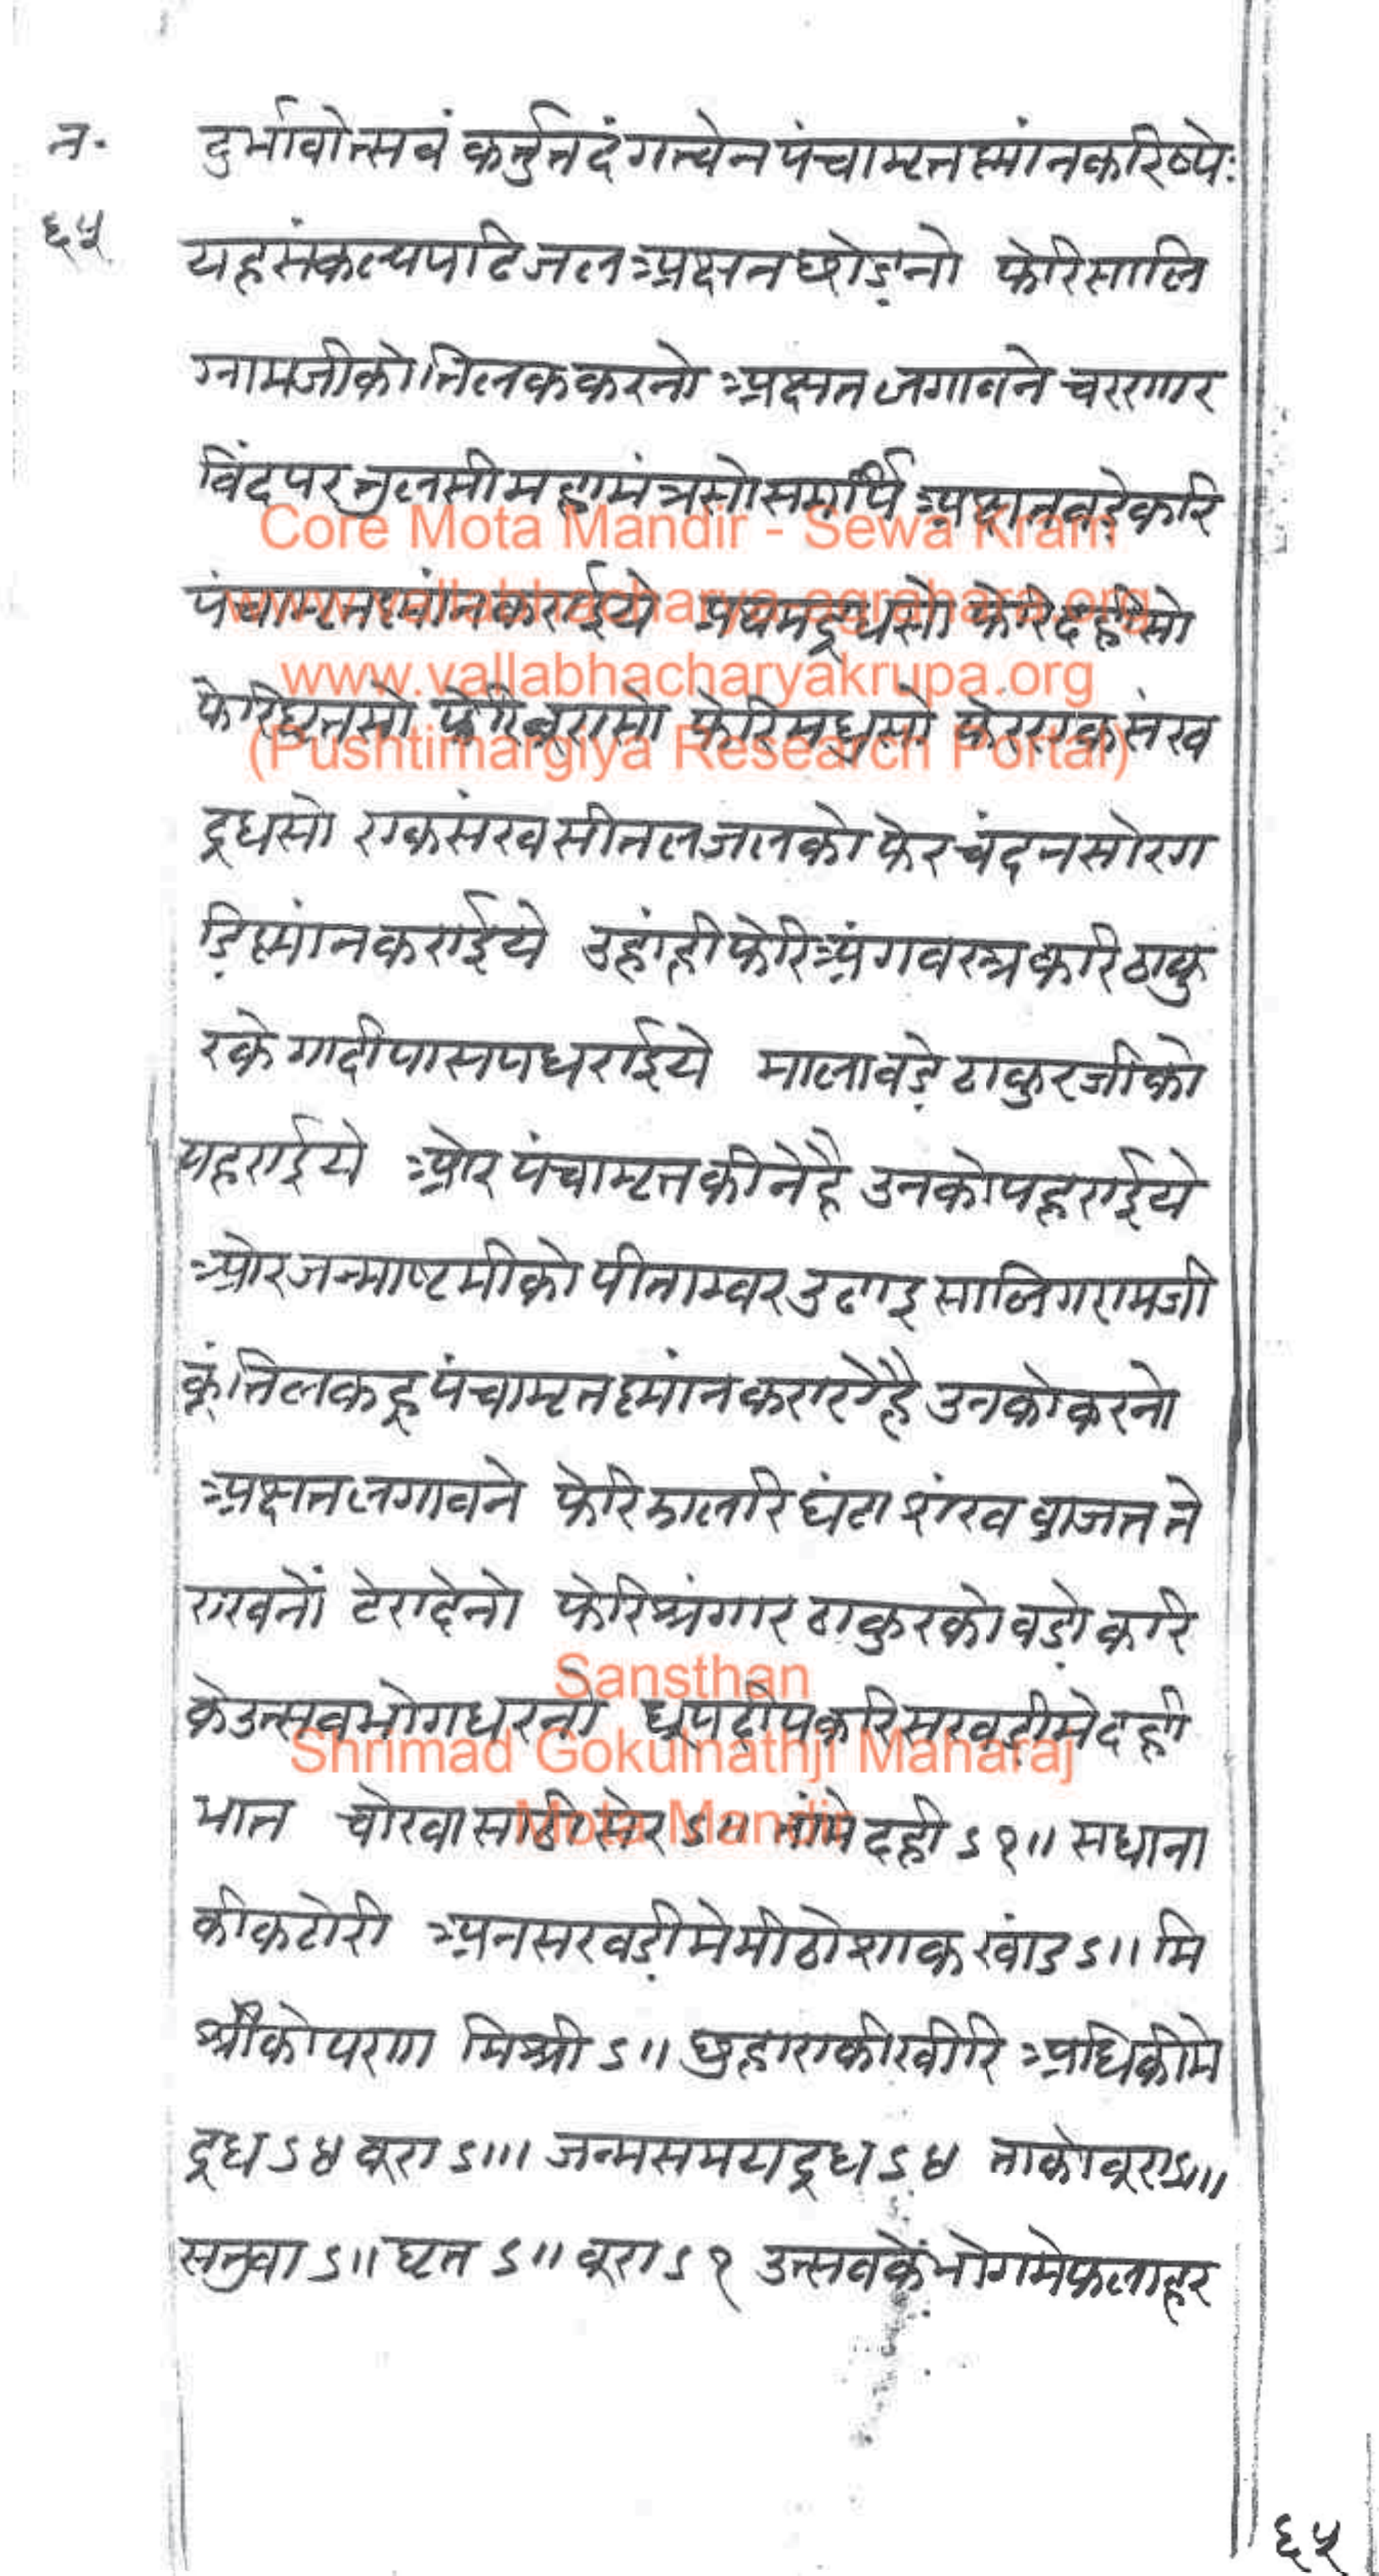 न॰
६५
दुर्भावोत्सवं कर्त्तुं तदंगत्वेन पंचामृतस्नांनकरिष्ये:
यहसंकल्पपढिजलअक्षतछोड़नो फेरिसालि
ग्रामजीकोतिलककरनो अक्षतलगावने चरणार
विंदपरतुलसीमहामंत्रसोसमर्पि अक्षतबड़ेकरि
पंचामृतस्नांनकराईये प्रथमदूधसो फेरिदहीसो
फेरिघृतसो फेरिबूरासो फेरिमधुसो फेरएकसंख
दूधसो एकसंखसीतलजलको फेरचंदनसोरग
ड़िस्नांनकराईये उहांहीफेरिअंगवस्त्रकरिठाकु
रके गादीपासपधराईये मालावड़ेठाकुरजीको
पहराईये ओर पंचामृतकीनेहै उनकोपहराईये
ओरजन्माष्टमीको पीताम्बर उढाइ सालिगरामजी
कूं तिलकहूपंचामृतस्नांनकराऐहै उनकोकरनो
अक्षतलगावने फेरिझालरिघंटा शंखबाजतते
राखनों टेरादेनो फेरिश्रंगारठाकुरको बड़ो करि
केउत्सवभोगधरनो धूपदीपकरिसखड़ीमेदही
भात चोखासाठीसेर ऽ॥ तांमेदही ऽ१॥ सधाना
कीकटोरी अनसखड़ीमेमीठोशाक खांड ऽ॥ मि
श्रीकोपणा मिश्री ऽ॥ छुहाराकीखीरि अधिकीमे
दूध ऽ४ बूरा ऽ॥। जन्मसमयदूध ऽ४ ताकोबूरा ऽ॥।
सतुवा ऽ॥ घृत ऽ॥ बूरा ऽ१ उत्सवकेंभोगमेफलाहर
६५
Core Mota Mandir - Sewa Kram
www.vallabhacharya-agrahara.org
www.vallabhacharyakrupa.org
(Pushtimargiya Research Portal)
Sansthan
Shrimad Gokulnathji Maharaj
Mota Mandir